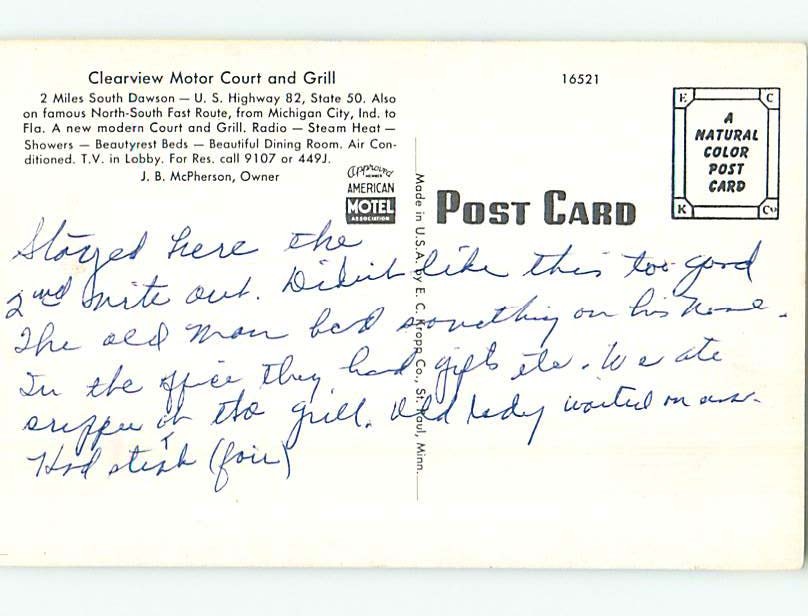 Clearview Motor Court and Grill
2 Miles South Dawson — U. S. Highway 82, State 50. Also
on famous North-South Fast Route, from Michigan City, Ind. to
Fla. A new modern Court and Grill. Radio — Steam Heat —
Showers — Beautyrest Beds — Beautiful Dining Room. Air Con-
ditioned. T.V. in Lobby. For Res. call 9107 or 449J.
J. B. McPherson, Owner
Approved
MEMBER
AMERICAN
MOTEL
ASSOCIATION
Made in U.S.A. by E. C. Kropp Co., St. Paul, Minn.
16521
POST CARD
E C
A
NATURAL
COLOR
POST
CARD
K Co
Stayed here the
2nd nite out. Didn't like this too good
The old man had something on his nose.
In the office they had gifts etc. We ate
supper at the grill. Old lady waited on us.
Had steak (fair)